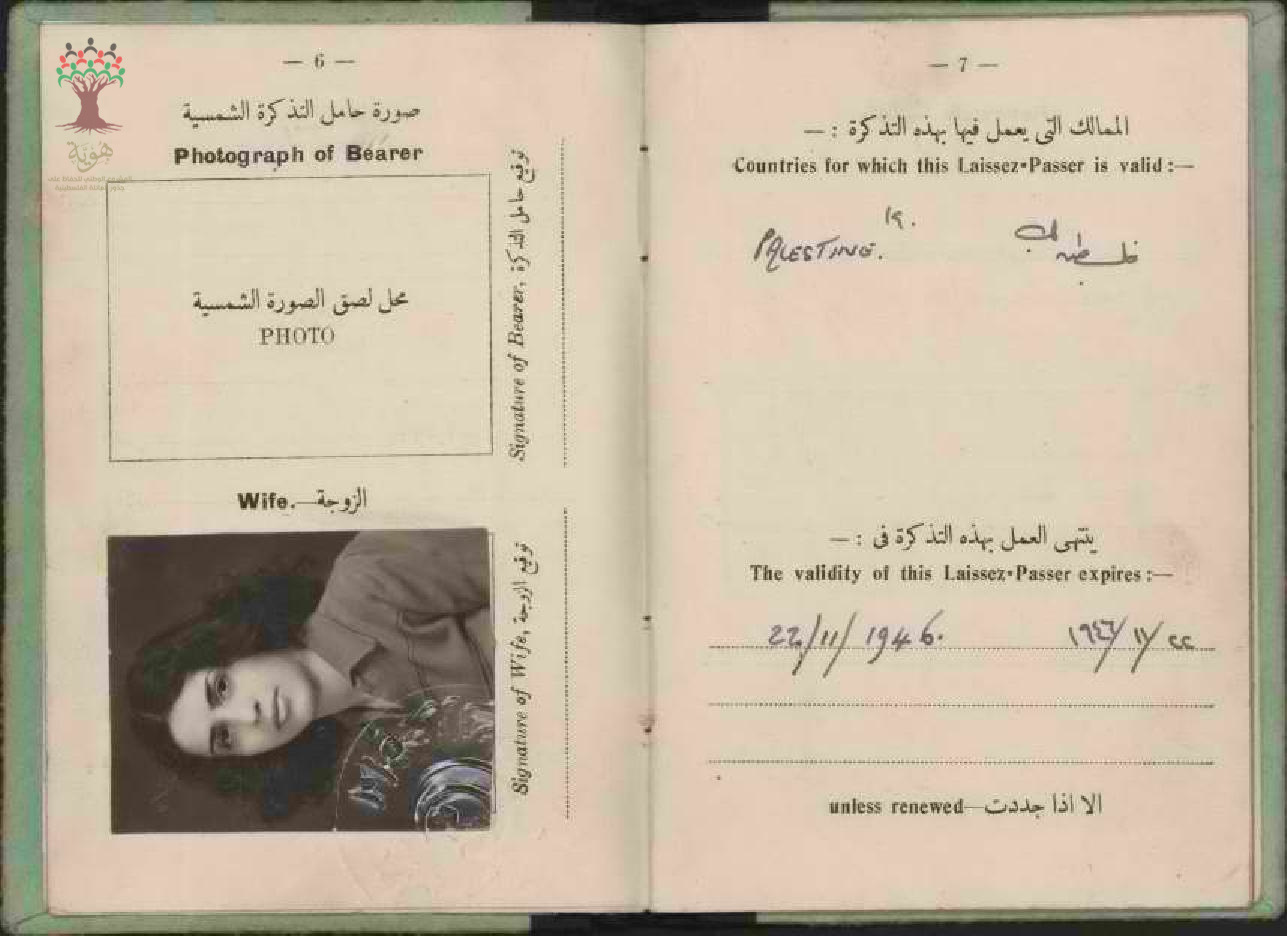 هوية
— 6 —
صورة حامل التذكرة الشمسية
Photograph of Bearer
محل لصق الصورة الشمسية
PHOTO
توقيع حامل التذكرة
Signature of Bearer,
الزوجة—Wife.
توقيع الزوجة
Signature of Wife,
— 7 —
الممالك التى يعمل فيها بهذه التذكرة : —
Countries for which this Laissez-Passer is valid :—
PALESTINE. فلسطين
ينتهى العمل بهذه التذكرة فى : —
The validity of this Laissez-Passer expires :—
22/11/1946. ٢٢/١١/١٩٤٦
unless renewed—الا اذا جددت